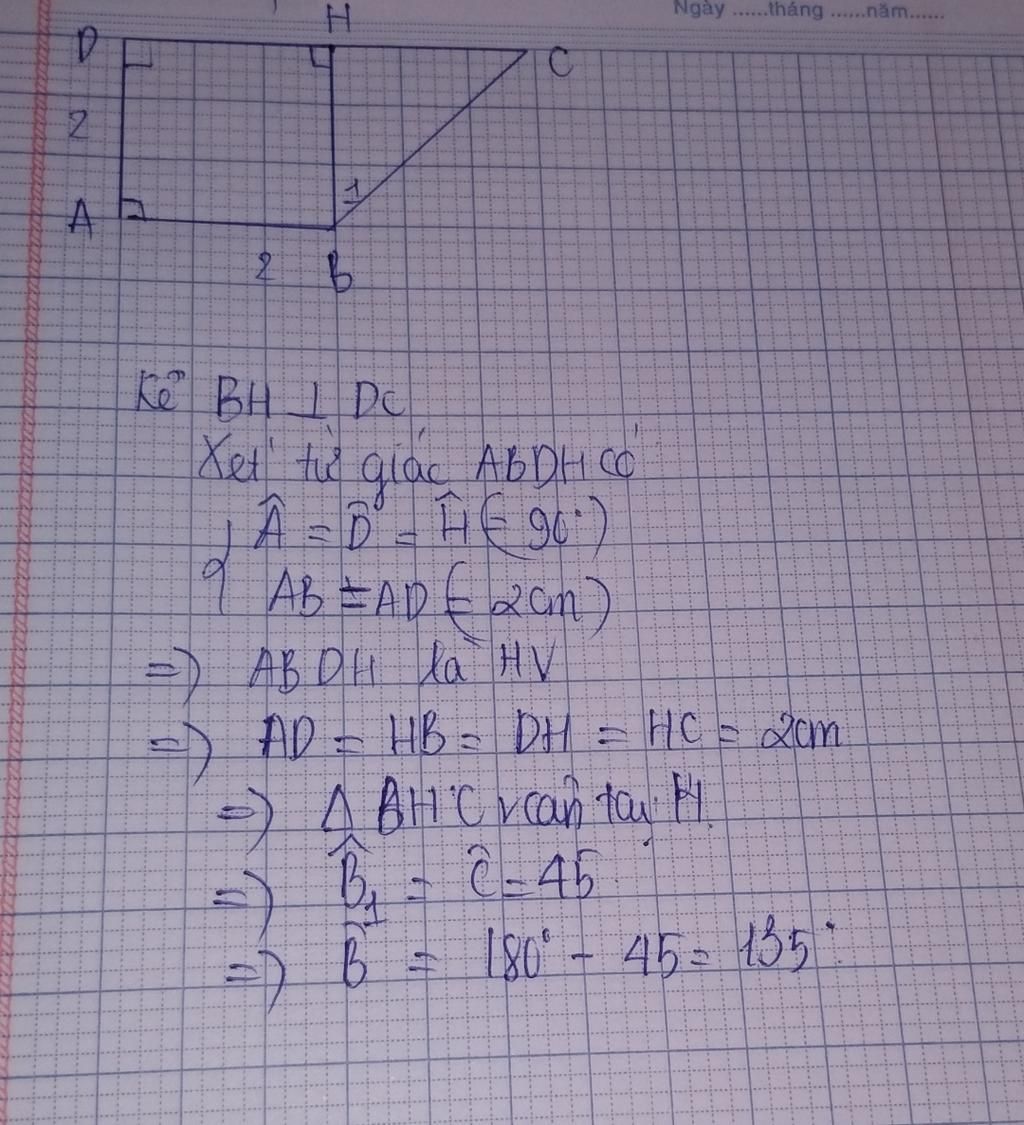 Ngày ......tháng ......năm......
H
D
C
2
1
A
2
B
Kẻ BH ⊥ DC
Xét tứ giác ABDH có
{ Â = D̂ = Ĥ (= 90°)
AB = AD (= 2cm)
=) ABDH là HV
=) AD = HB = DH = HC = 2cm
=) Δ BHC vcân tại H.
=) B̂₁ = Ĉ = 45
=) B̂ = 180° - 45 = 135°.